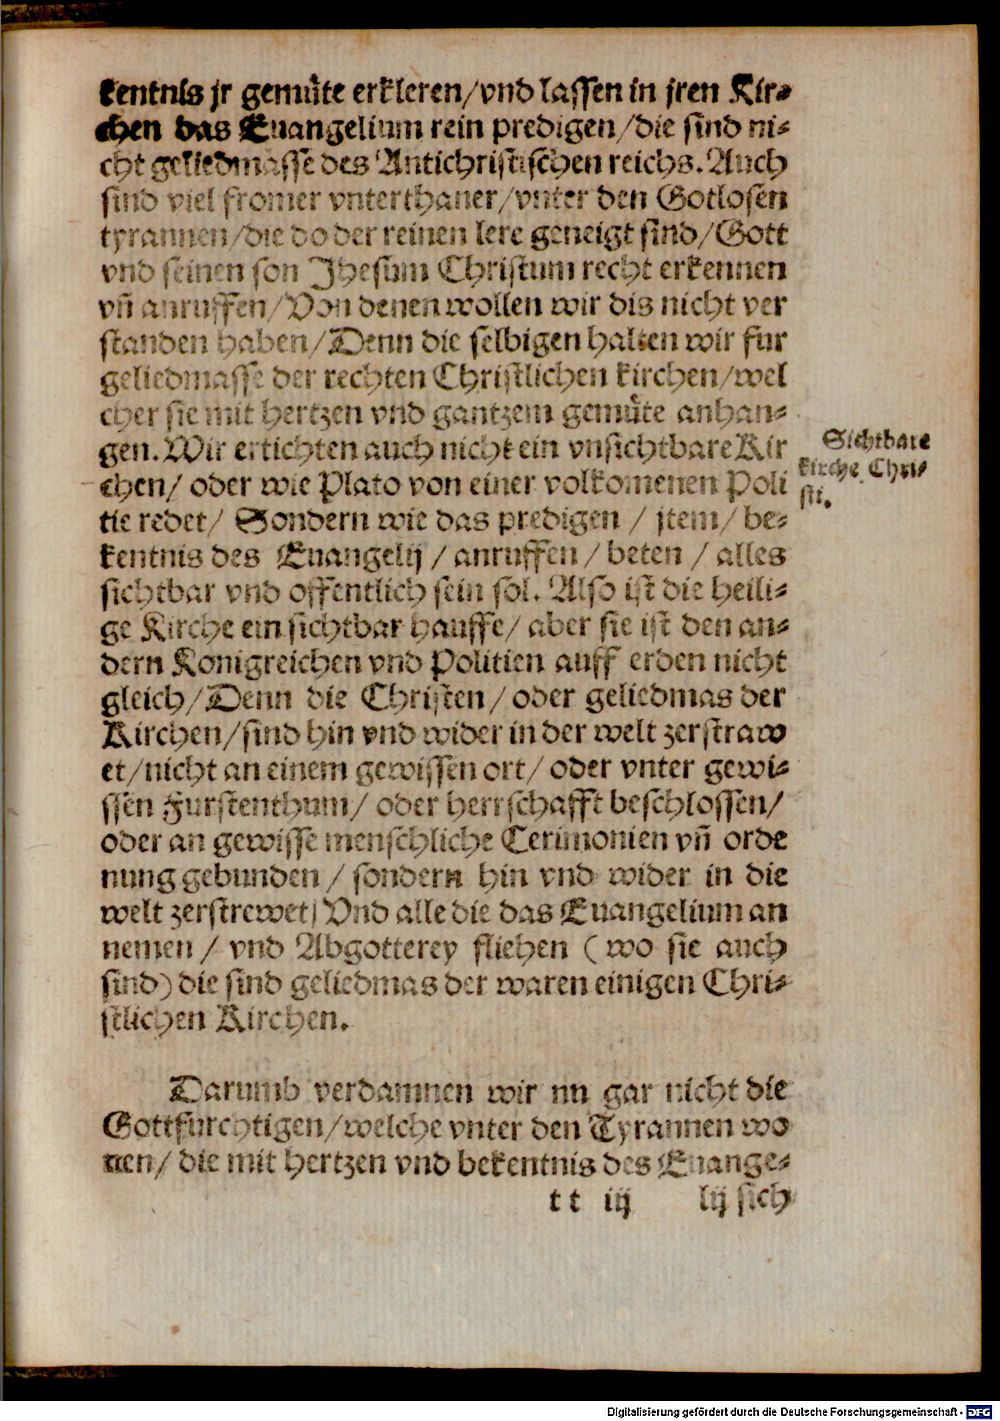 kentnis jr gemuͤte erkleren/vnd lassen in jren Kir⸗
chen das Euangelium rein predigen/die sind ni⸗
cht geliedmasse des Antichristischen reichs. Auch
sind viel fromer vnterthaner/vnter den Gotlosen
tyrannen/die do der reinen lere geneigt sind/Gott
vnd seinen son Jhesum Christum recht erkennen
vñ anruffen/Von denen wollen wir dis nicht ver
standen haben/Denn die selbigen halten wir fur
geliedmasse der rechten Christlichen kirchen/wel
cher sie mit hertzen vnd gantzem gemuͤte anhan⸗
gen. Wir ertichten auch nicht ein vnsichtbare Kir
chen/ oder wie Plato von einer volkomenen Poli
tie redet/ Sondern wie das predigen / jtem/ be⸗
kentnis des Euangelij / anruffen / beten / alles
sichtbar vnd offentlich sein sol. Also ist die heili⸗
ge Kirche ein sichtbar hauffe/ aber sie ist den an⸗
dern Konigreichen vnd Politien auff erden nicht
gleich/Denn die Christen / oder geliedmas der
Kirchen/sind hin vnd wider in der welt zerstraw
et/nicht an einem gewissen ort/ oder vnter gewi⸗
ssen Furstenthum/ oder herrschafft beschlossen/
oder an gewisse menschliche Cerimonien vñ orde
nung gebunden / sondern hin vnd wider in die
welt zerstrewet/ Vnd alle die das Euangelium an
nemen / vnd Abgotterey fliehen ( wo sie auch
sind) die sind geliedmas der waren einigen Chri⸗
stlichen Kirchen.
Sichtbare
kirche Chri⸗
sti.
Darumb verdamnen wir nu gar nicht die
Gottfurchtigen/welche vnter den Tyrannen wo
nen/ die mit hertzen vnd bekentnis des Euange⸗
t t iij lij sich
Digitalisierung gefördert durch die Deutsche Forschungsgemeinschaft - DFG